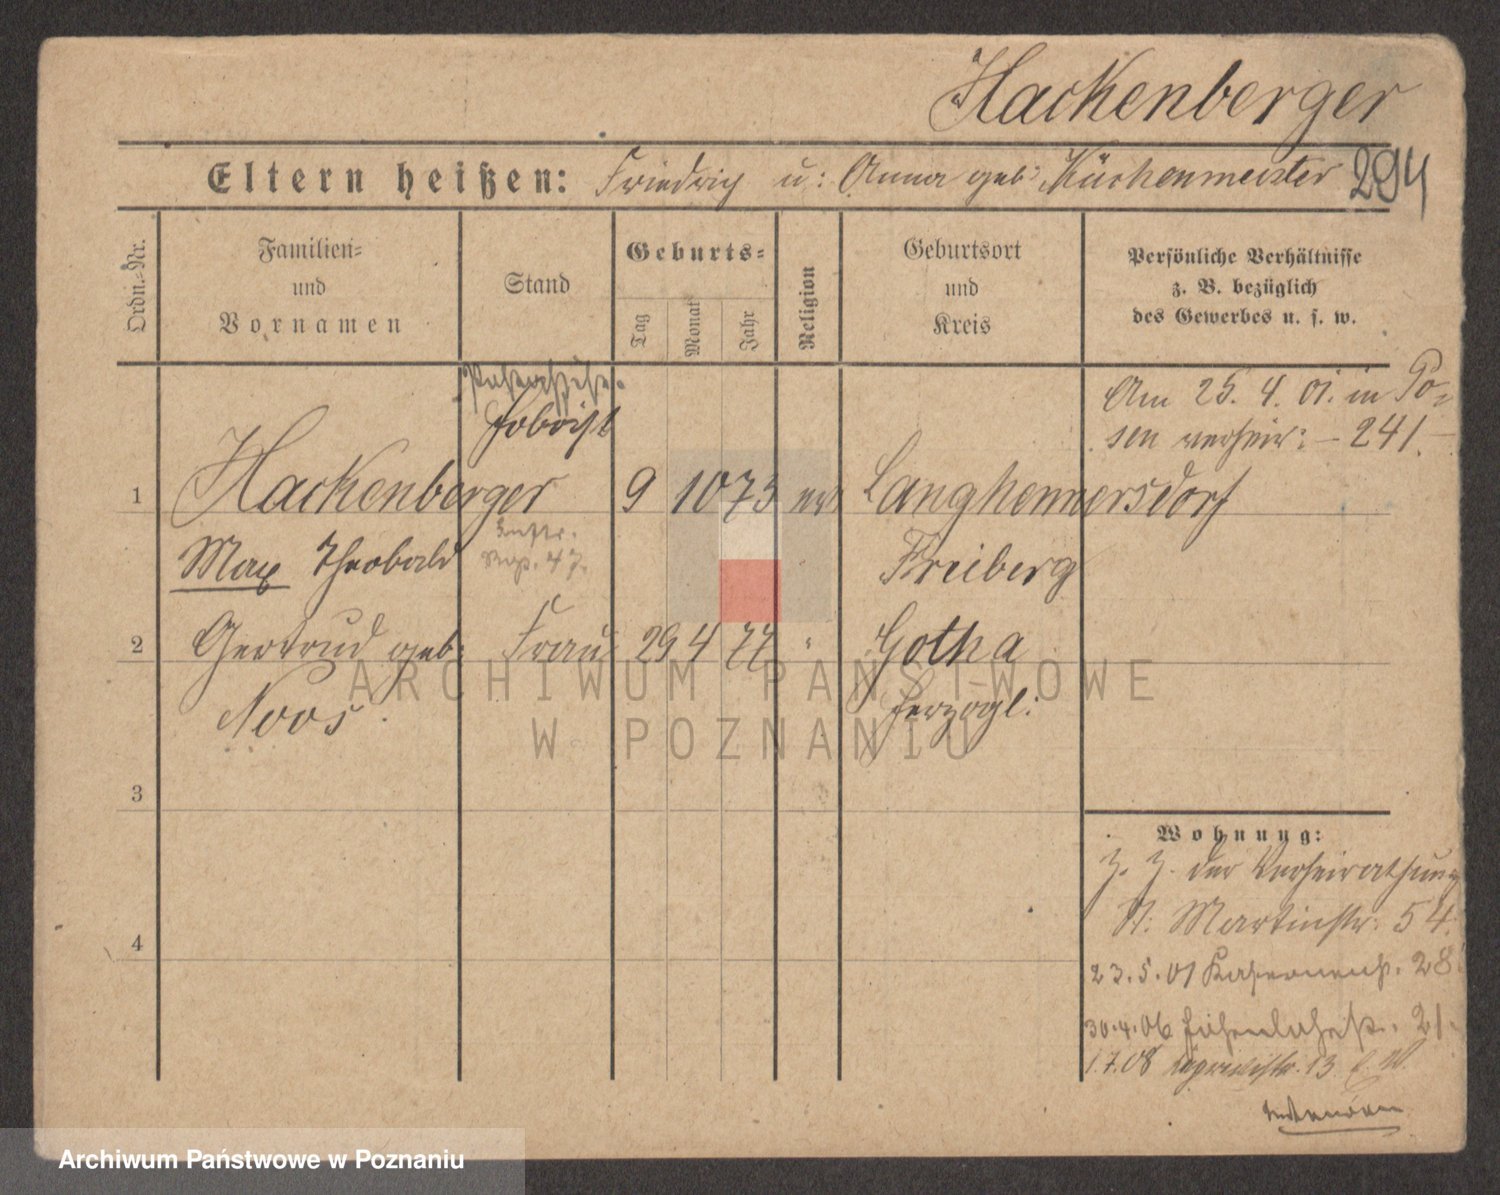 Hackenberger
Eltern heißen: Friedrich u: Anna geb: Küchenmeister 294
Ordn.=Nr.
Familien=
und
Vornamen
Stand
Geburts=
Tag
Monat
Jahr
Religion
Geburtsort
und
Kreis
Persönliche Verhältnisse
z. B. bezüglich
des Gewerbes u. s. w.
Am 25. 4. 01. in Po=
sen verheir: – 241. –
Hoboist
1 Hackenberger 9 10 73 ev Langhennersdorf
Inftr.
Max Theobald Rgt. 47. Freiberg
2 Gertrud geb: Frau 29 4 77 " Gotha
Noos. Herzogl:
3
4
Wohnung:
z. Z. der Verheirathung
St. Martinstr. 54.
23.5.01 Kasernenstr. 28.
30.4.06 Hohenlohestr. 21.
1.7.08 13
ARCHIWUM PAŃSTWOWE
W POZNANIU
Archiwum Państwowe w Poznaniu